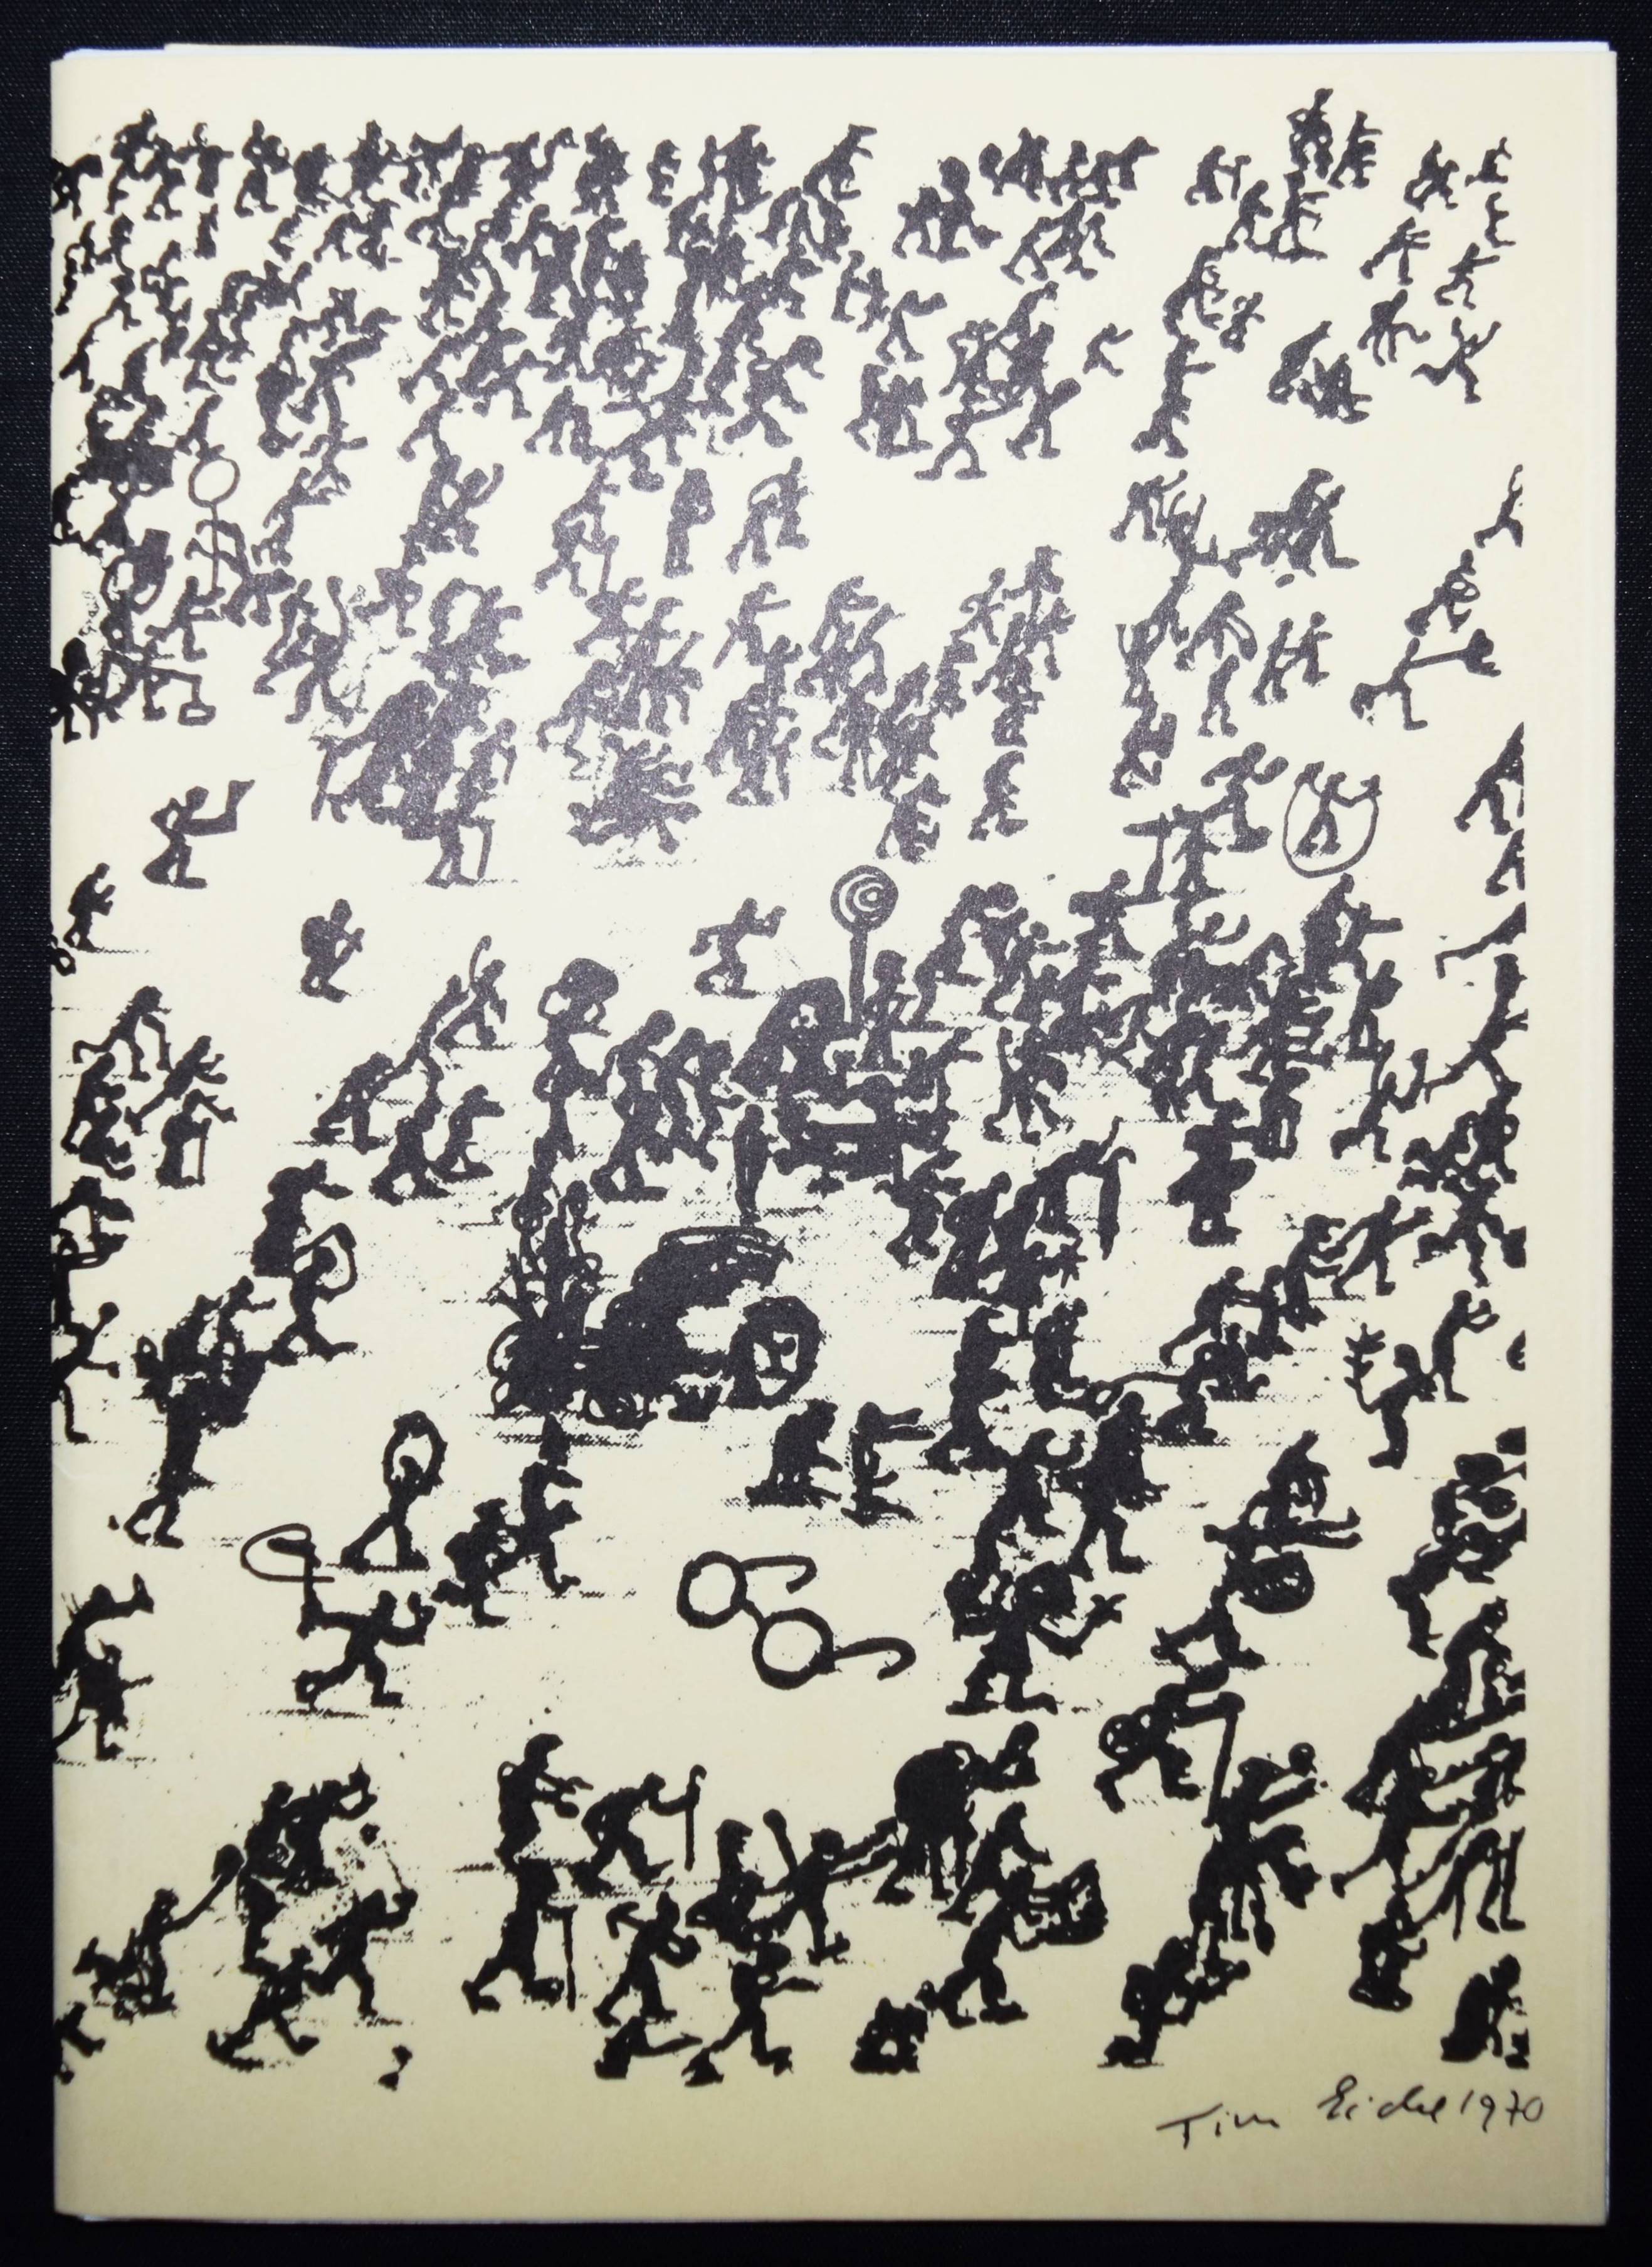 Tim Eichel 1970